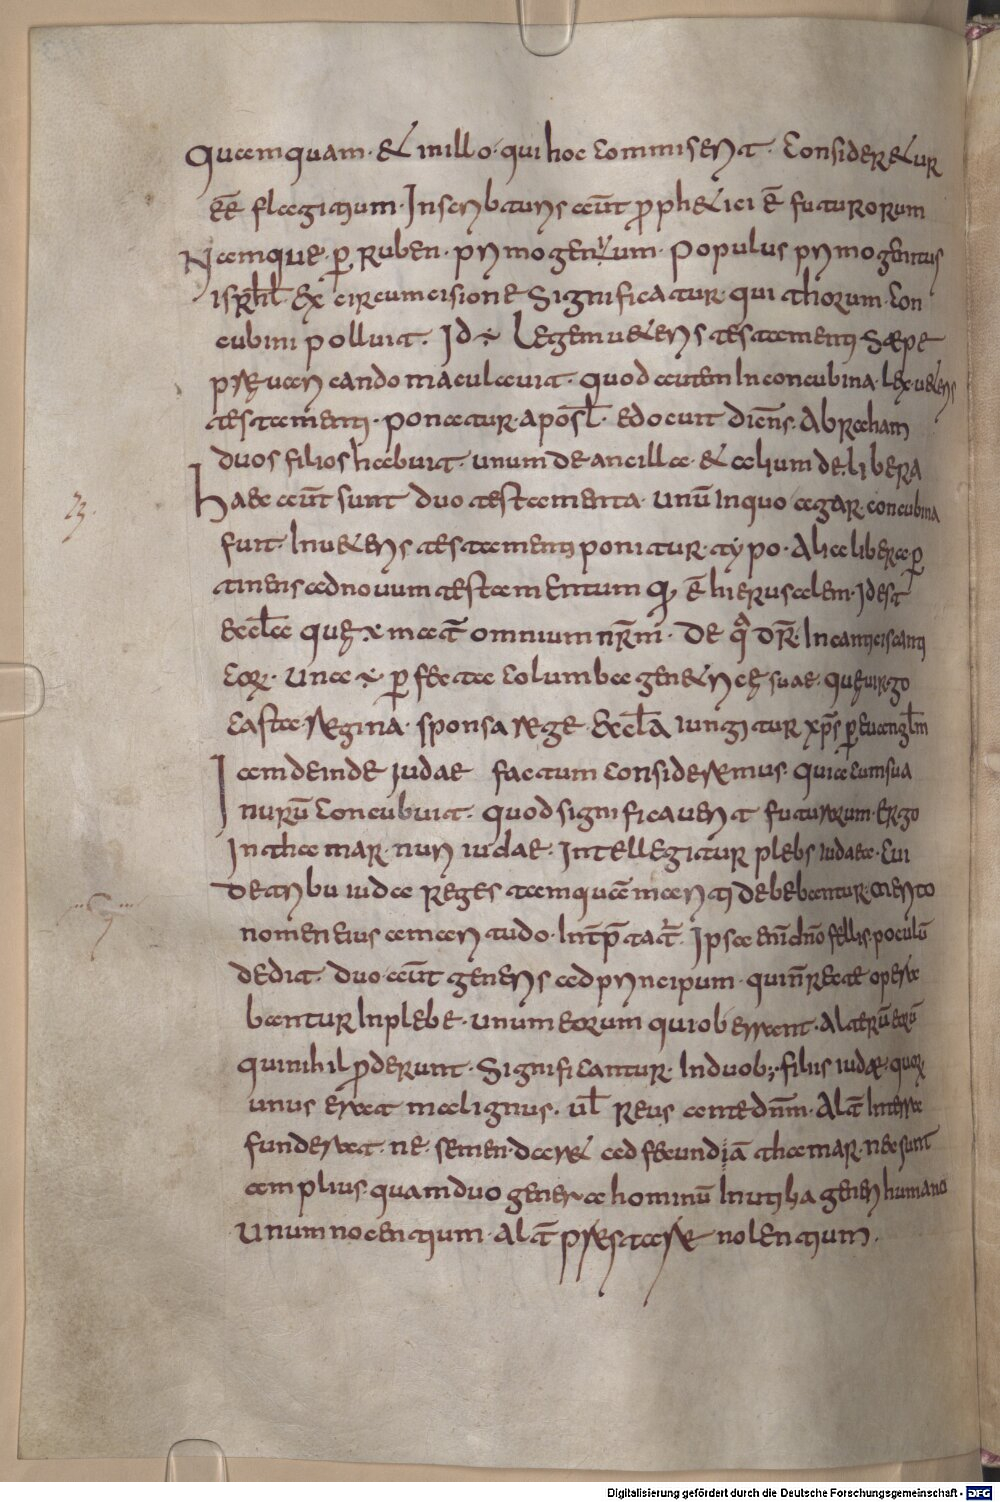 Quamquam · et in illo · qui hoc commiserit · consideretur
eē flagitium · In scribturis aūt p̄phetici ē futurorum
Namque · ꝑ Ruben · primogenitum · populus primogenitus
isrhl̄ ex circumcisione significatur · qui thorum · con
cubini polluit · Id ÷ legem ueteris testamenti sæpe
præuaricando maculauit · quod autem In concubina · lex · ueteris
testamenti · ponatur · aposl̄ · edocuit diēns · Abraham
duos filios habuit · unum de ancilla · et alium de libera
haec aūt sunt duo testamenta · unū In quo agar · concubina
fuit · In ueteris testamenti ponitur · typo · Alia libera ꝑ
tinens ad nouum testamentum q, ē hierusalem · id est
eccl̄a quę ÷ mat̄ omnium nr̄m · De q̄ dr̄ · In canticis canti
corꝝ · una ÷ ꝑfecta columba genetricę suae · quę uirgo
casta regina · sponsa rege · eccl̄a iungitur xp̄s ꝑ euanglm̄
Iam deinde iudae factum consideremus · quia cum sua
nurū concubuit · quod significauerit futurorum · ergo
In thamar · nuri iudae · Intellegitur plebs iudaea · cui
de tribu iuda reges tamquā mariti debebantur · merito
nomen eius amaritudo · Int̄p̄tat̄ · Ipsa enī dn̄o fellis · poculū
dedit · duo aūt generis ad principum · qui n̄ recte opera
bantur In plebe · unum eorum qui oberrant · Alterū eorū
qui nihil p̄derunt · significantur · In duob; · filiis iudæ · quorꝝ
unus erat malignus · ul̄ reus ante dn̄m · Alt̄ In terra
fundebat · ne · semen · daret ad fecundiā thamar · nec sunt
amplius · quam duo genera hominū Inutilia generi humano
Unum nocentium · Alt̄ prestare nolentium ·
23 ·
Digitalisierung gefördert durch die Deutsche Forschungsgemeinschaft - DFG